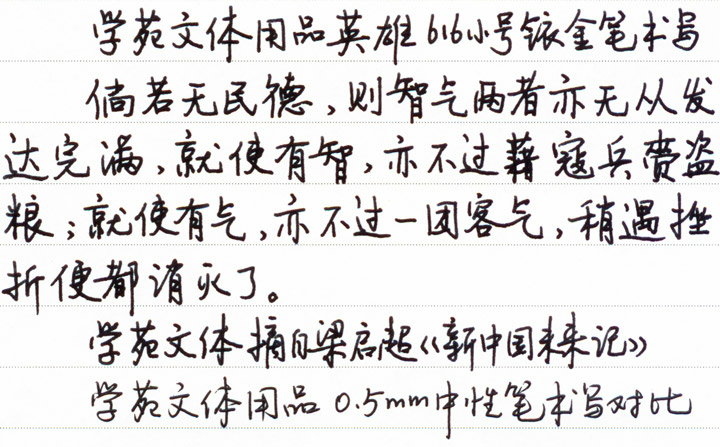 学苑文体用品英雄616小号铱金笔书写
倘若无民德,则智气两者亦无从发
达完满,就使有智,亦不过藉寇兵赍盗
粮;就使有气,亦不过一团客气,稍遇挫
折便都消灭了。
学苑文体摘自梁启超《新中国未来记》
学苑文体用品0.5mm中性笔书写对比